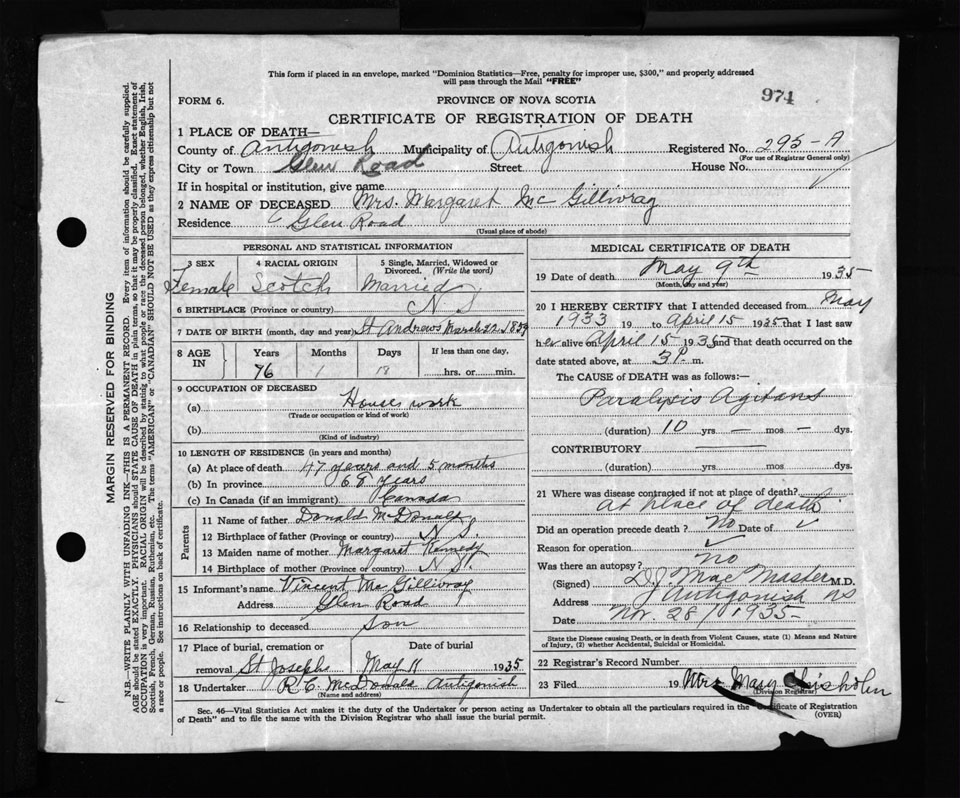 This form if placed in an envelope, marked "Dominion Statistics—Free, penalty for improper use, $300," and properly addressed
will pass through the Mail "FREE"
974
FORM 6.
PROVINCE OF NOVA SCOTIA
CERTIFICATE OF REGISTRATION OF DEATH
1 PLACE OF DEATH—
County of Antigonish Municipality of Antigonish Registered No. 295-A
(For use of Registrar General only)
City or Town Glen Road Street House No.
If in hospital or institution, give name
2 NAME OF DECEASED Mrs. Margaret Mc Gillivray
Residence Glen Road
(Usual place of abode)
PERSONAL AND STATISTICAL INFORMATION
3 SEX 4 RACIAL ORIGIN 5 Single, Married, Widowed or Divorced. (Write the word)
Female Scotch Married
6 BIRTHPLACE (Province or country) N S.
7 DATE OF BIRTH (month, day and year) St Andrews March 22. 1859
8 AGE IN Years Months Days If less than one day,
76 1 18 hrs. or min.
9 OCCUPATION OF DECEASED
(a) Houses work
(Trade or occupation or kind of work)
(b)
(Kind of industry)
10 LENGTH OF RESIDENCE (in years and months)
(a) At place of death 47 years and 5 months
(b) In province 68 years
(c) In Canada (if an immigrant) Canada
Parents
11 Name of father Donald McDonald
12 Birthplace of father (Province or country) N S.
13 Maiden name of mother Margaret Kennedy
14 Birthplace of mother (Province or country) N S.
15 Informant's name Vincent Mc Gillivray
Address Glen Road
16 Relationship to deceased Son
17 Place of burial, cremation or removal St Josephs Date of burial May 11 1935
18 Undertaker R. C. McDonald Antigonish
(Name and address)
MEDICAL CERTIFICATE OF DEATH
19 Date of death May 9th 1935
(Month, day and year)
20 I HEREBY CERTIFY that I attended deceased from May
1933 19 to April 15 1935 that I last saw
her alive on April 15 1935 and that death occurred on the
date stated above, at 3 P. m.
The CAUSE of DEATH was as follows:—
Paralysis Agitans
(duration) 10 yrs. — mos — dys.
CONTRIBUTORY
(duration) yrs. mos. dys.
21 Where was disease contracted if not at place of death?
at place of death
Did an operation precede death? No Date of ✓
Reason for operation ✓
Was there an autopsy? No
(Signed) D J MacMaster M.D.
Address Antigonish NS
Date 28 1935
State the Disease causing Death, or in death from Violent Causes, state (1) Means and Nature
of Injury, (2) whether Accidental, Suicidal or Homicidal.
22 Registrar's Record Number
23 Filed 19 Mrs Mary Chisholm
(Division Registrar)
Sec. 46—Vital Statistics Act makes it the duty of the Undertaker or person acting as Undertaker to obtain all the particulars required in the Certificate of Registration
of Death" and to file the same with the Division Registrar who shall issue the burial permit. (OVER)
MARGIN RESERVED FOR BINDING
N.B.—WRITE PLAINLY WITH UNFADING INK—THIS IS A PERMANENT RECORD. Every item of information should be carefully supplied.
AGE should be stated EXACTLY. PHYSICIANS should STATE CAUSE OF DEATH in plain terms, so that it may be properly classified. Exact statement of
OCCUPATION is very important. RACIAL ORIGIN will be described by stating to what people or race the deceased person belonged, whether English, Irish,
Scottish, French, German, Russian, Ruthenian, etc. The terms "AMERICAN" or "CANADIAN" SHOULD NOT BE USED as they express citizenship but not
a race or people. See instructions on back of certificate.